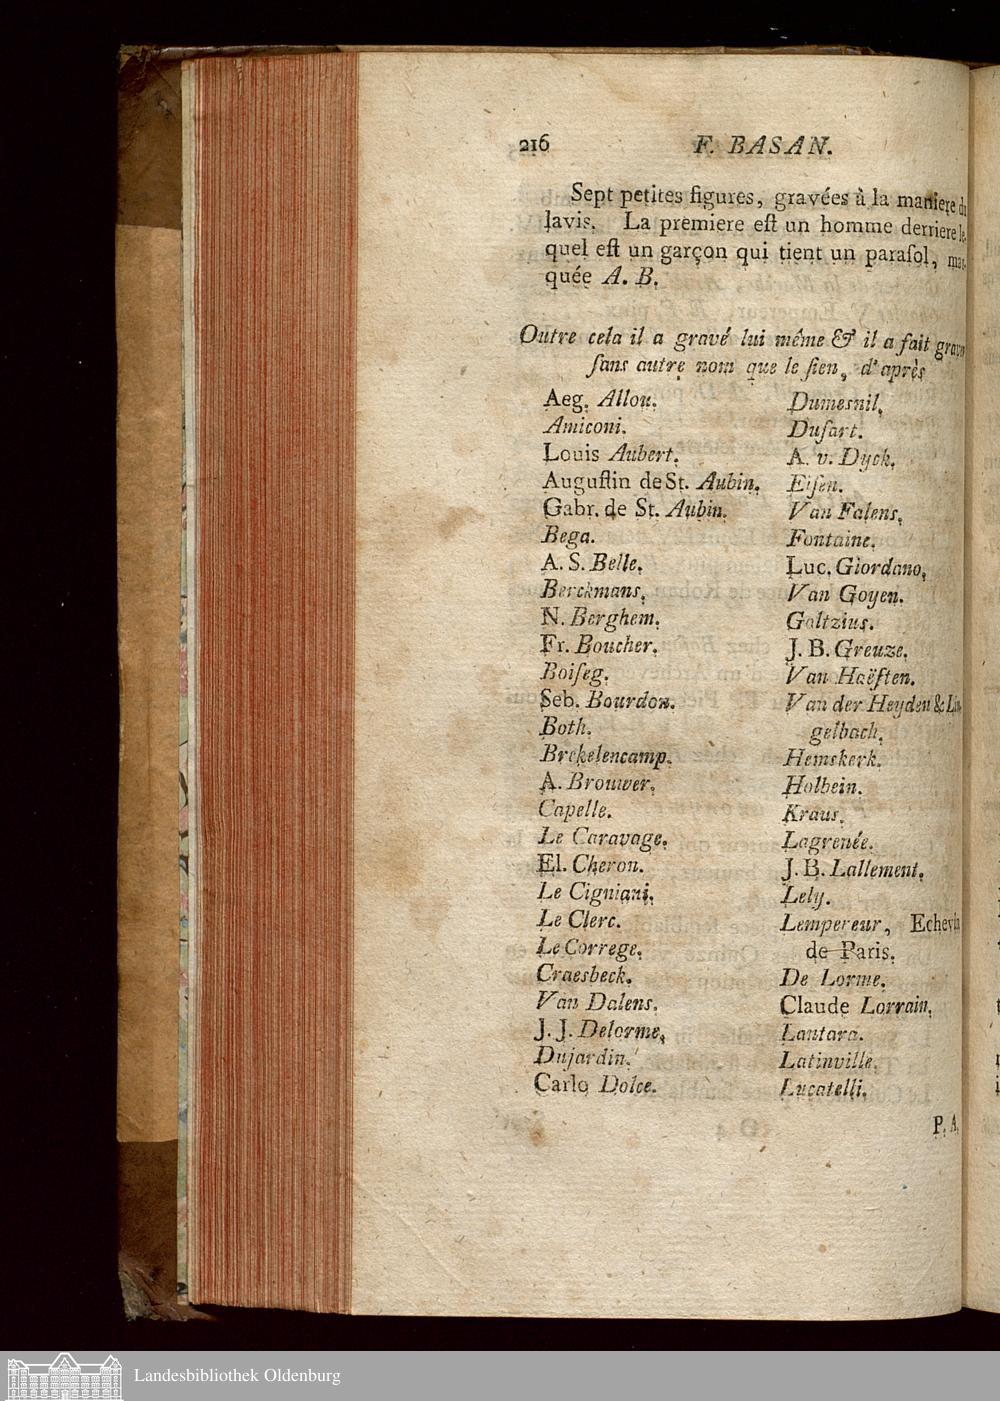 216 F. BASAN.
Sept petites figures, gravées à la maniere du
lavis. La premiere eſt un homme derriere le-
quel eſt un garçon qui tient un paraſol, mar-
quée A. B.
Outre cela il a gravé lui même & il a fait graver
ſans autre nom que le ſien, d'après
Aeg. Allou.
Amiconi.
Louis Aubert.
Auguſtin de St. Aubin.
Gabr. de St. Aubin.
Bega.
A. S. Belle.
Berckmans.
N. Berghem.
Fr. Boucher.
Boiſeg.
Seb. Bourdon.
Both.
Brekelencamp.
A. Brouwer.
Capelle.
Le Caravage.
El. Cheron.
Le Cigniani.
Le Clerc.
Le Correge.
Craesbeck.
Van Dalens.
J. J. Delorme.
Dujardin.
Carlo Dolce.
Dumesnil.
Duſart.
A. v. Dyck.
Eiſen.
Van Falens.
Fontaine.
Luc. Giordano.
Van Goyen.
Goltzius.
J. B. Greuze.
Van Haëften.
Van der Heyden & Lin-
gelbach.
Hemskerk.
Holbein.
Kraus.
Lagrenée.
J. B. Lallement.
Lely.
Lempereur, Echevin
de Paris.
De Lorme.
Claude Lorrain.
Lantara.
Latinville.
Lucatelli.
P. A.
Landesbibliothek Oldenburg